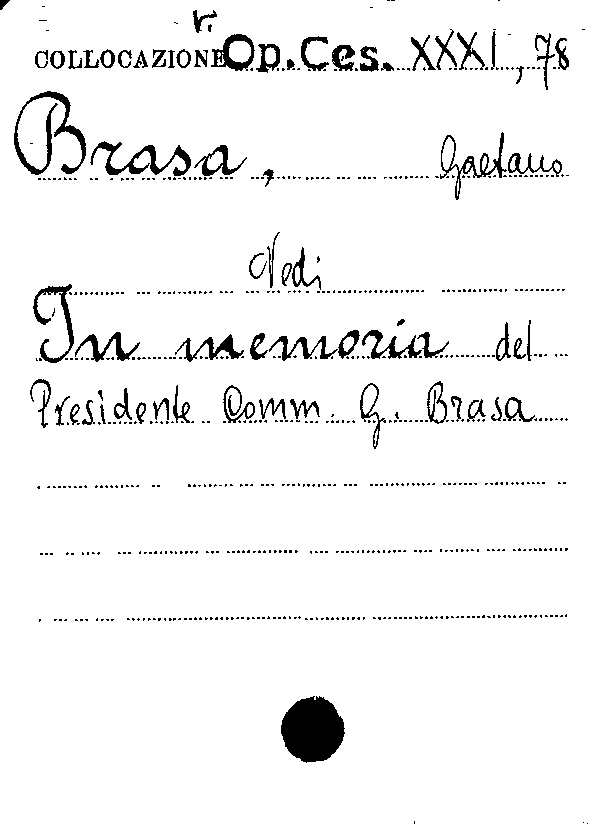 v.
COLLOCAZIONE Op. Ces. XXXI, 78
Brasa, Gaetano
Vedi
In memoria del
Presidente Comm. G. Brasa